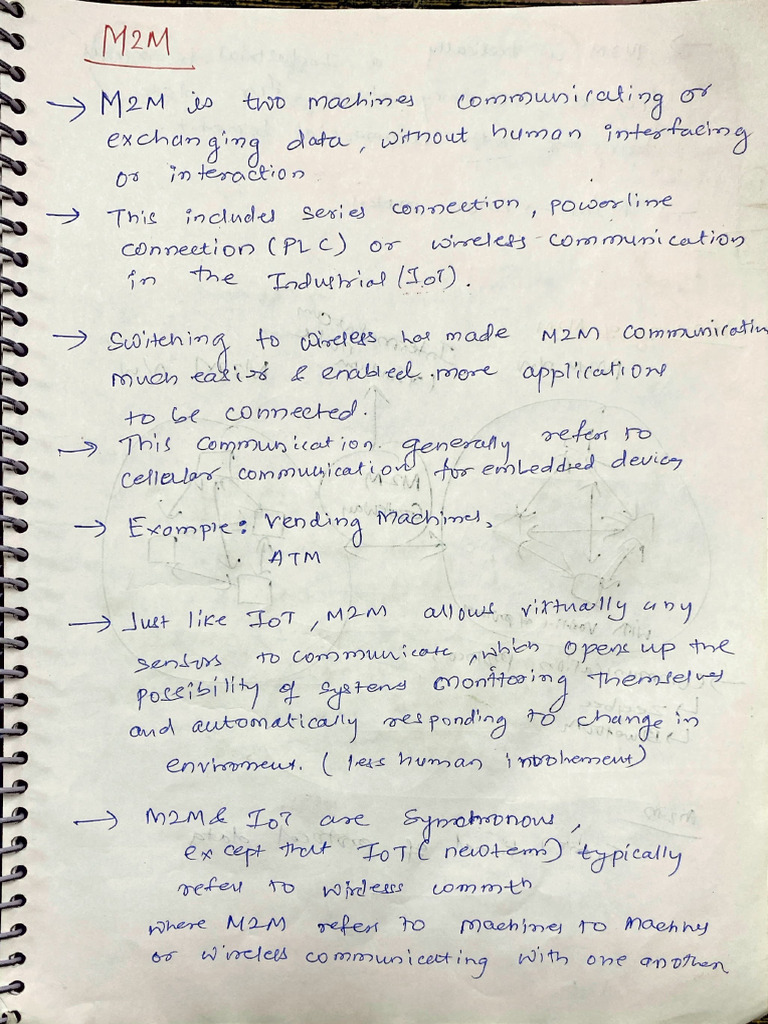 M2M
→ M2M is two machines communicating or
exchanging data, without human interfacing
or interaction
→ This includes series connection, powerline
connection (PLC) or wireless communication
in the Industrial (IoT).
→ Switching to wireless has made M2M communication
much easier & enabled more applications
to be connected.
→ This communication generally refers to
cellular communication for embedded devices
→ Example: Vending Machines,
ATM
→ Just like IoT, M2M allows virtually any
sensors to communicate, which opens up the
possibility of systems monitoring themselves
and automatically responding to change in
enviroment. (less human involvement)
→ M2M & IoT are Synchronous,
except that IoT (newterm) typically
refers to wireless commth
where M2M refers to machines to machines
or wireless communicating with one another